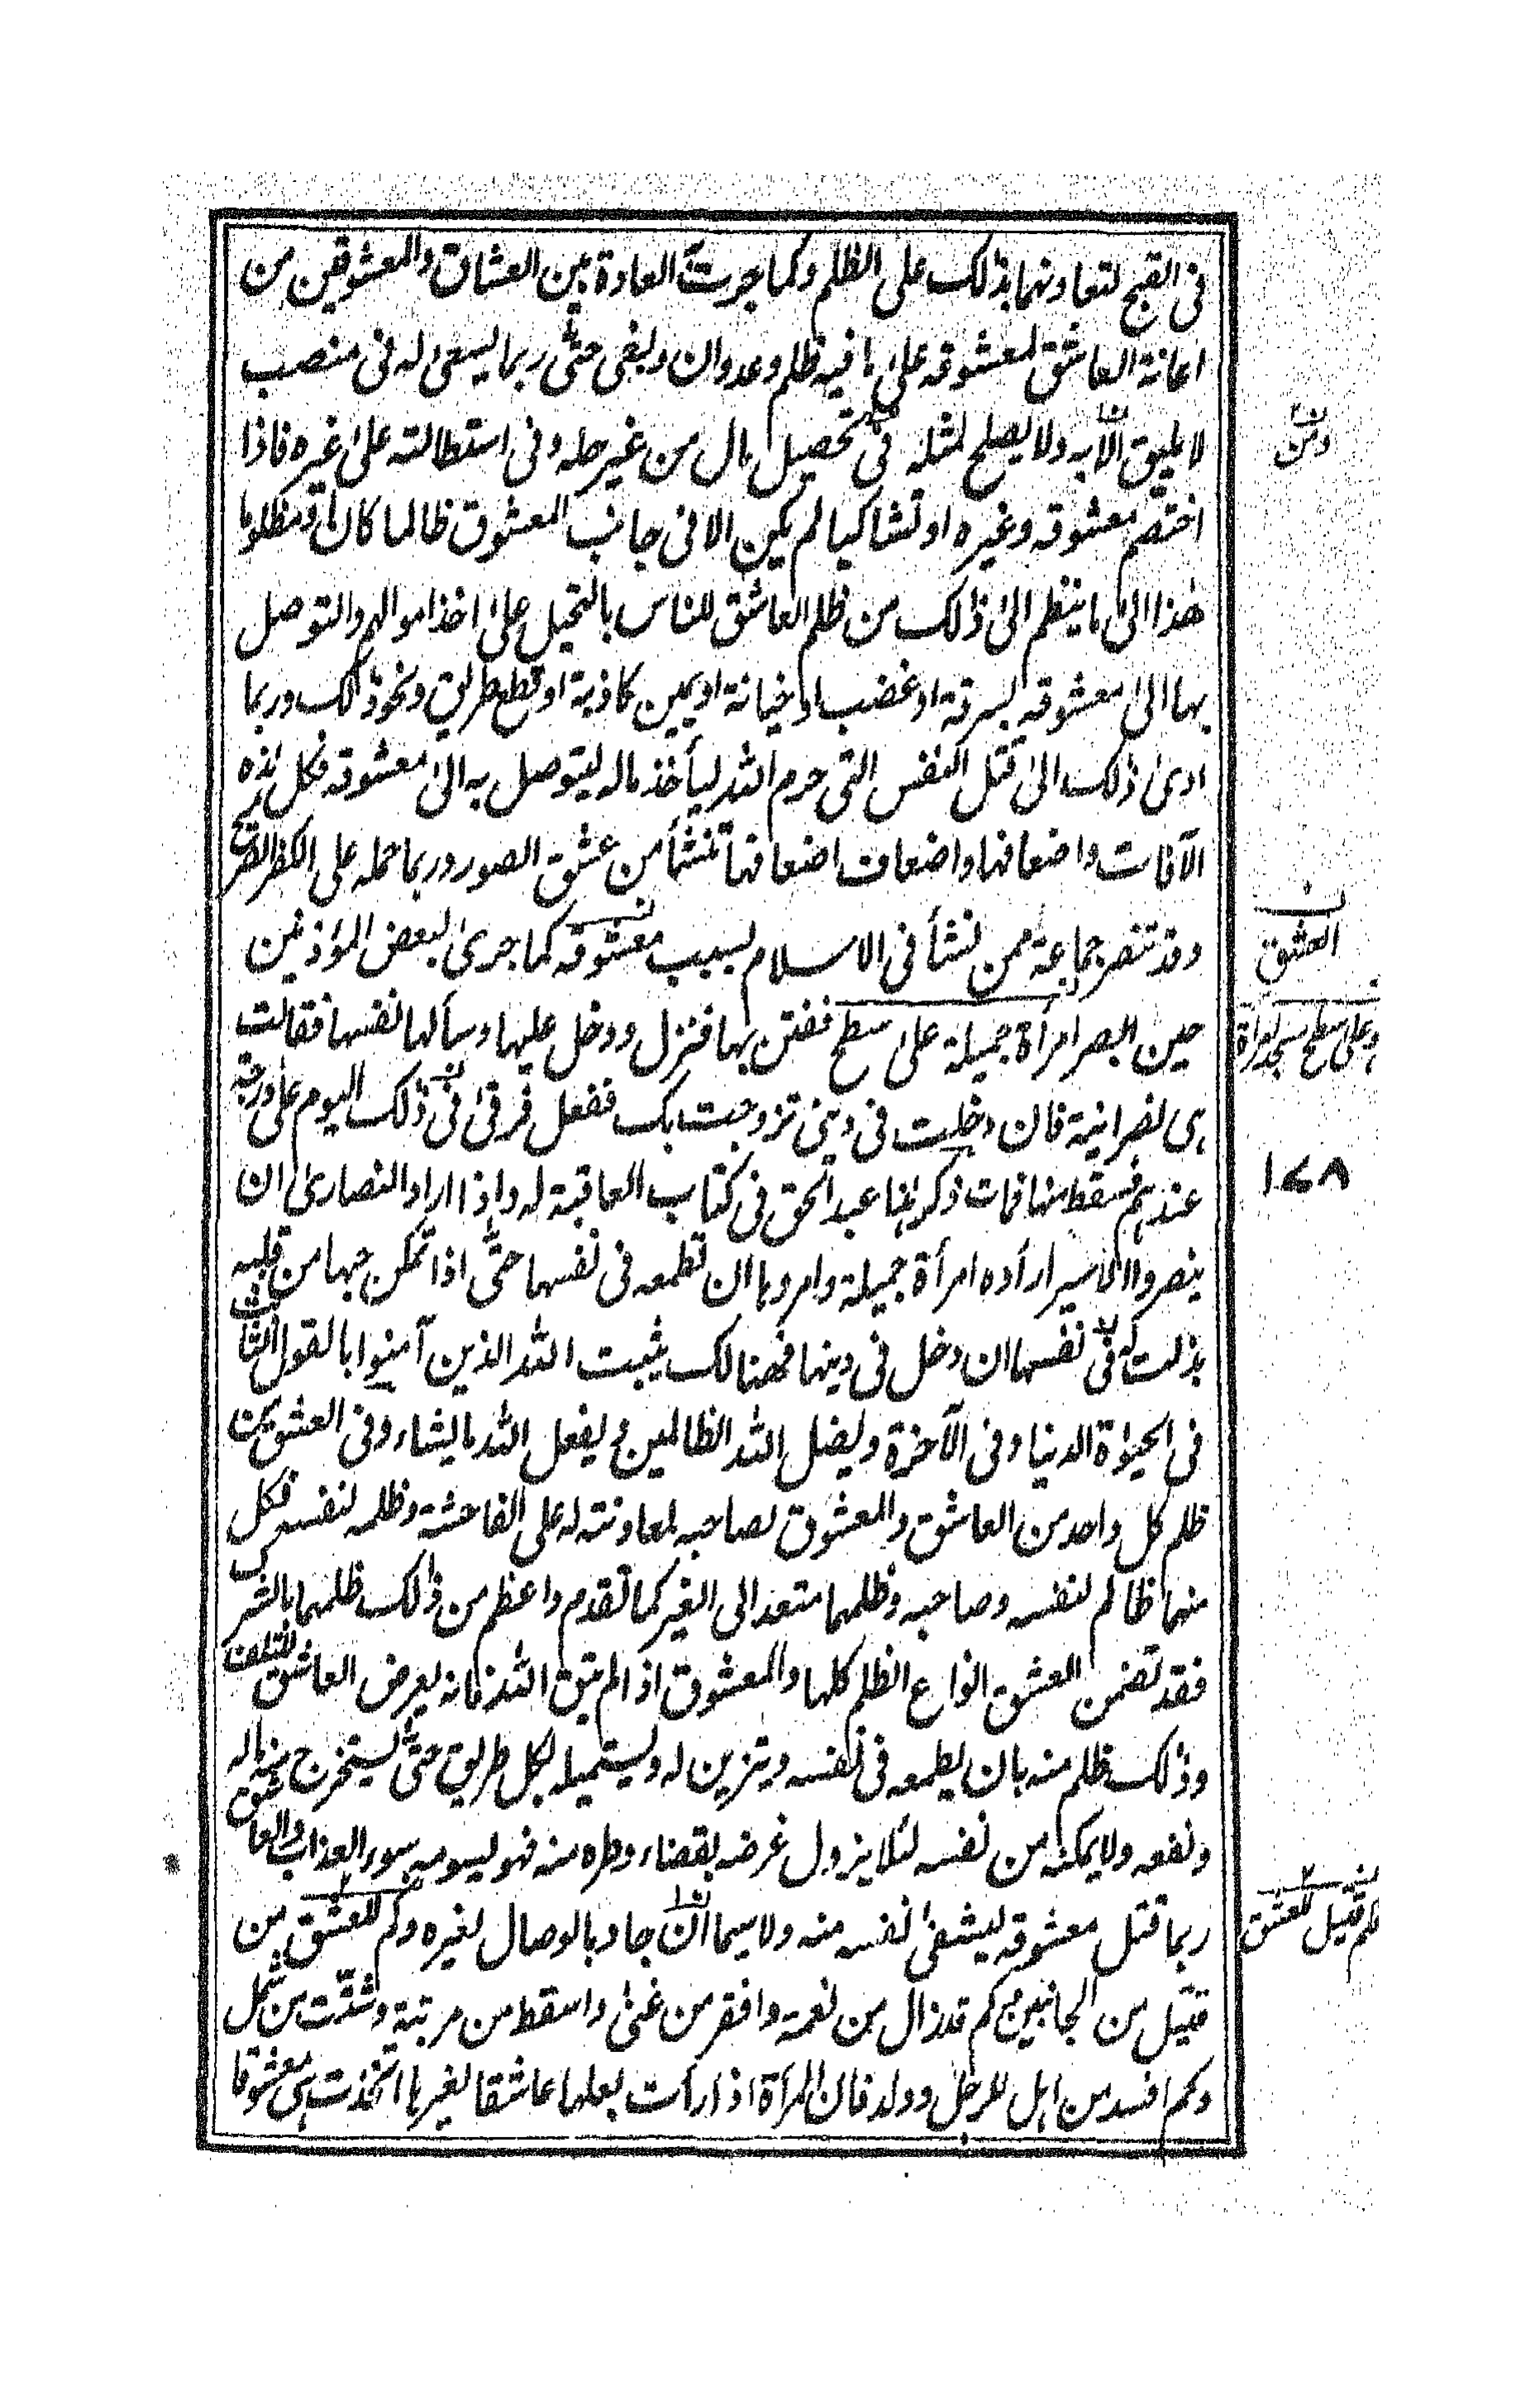 فى القبح لتعاونهما بذلك على الظلم وكما جرت العادة بين العشاق والمعشوقين من
اعانة العاشق لمعشوقه على ما فيه ظلم وعدوان وبغى حتى ربما يسعى له فى منصب
لا يليق الا به ولا يصلح لمثله فى تحصيل مال من غير حله وفى استطالته على غيره فاذا
اختصم معشوقه وغيره او تشاكيا لم يكن الا فى جانب المعشوق ظالما كان او مظلوما
هذا الى ما ينظم الى ذلك من ظلم العاشق للناس بالتحيل على اخذ اموالهم والتوصل
بها الى معشوقه بسرقة او غضب او خيانة او يمين كاذبة او قطع طريق ونحو ذلك وربما
ادى ذلك الى قتل النفس التى حرم الله ليأخذ ماله ليتوصل به الى معشوقه فكل هذه
الآفات واضعافها واضعاف اضعافها تنشأ من عشق الصور وربما حمله على الكفر الصريح
وقد تنصر جماعة ممن نشأ فى الاسلام بسبب معشوقه كما جرى لبعض المؤذنين
حين ابصر امرأة جميلة على سطح ففتن بها فنزل ودخل عليها وسألها نفسها فقالت
هى نصرانية فان دخلت فى دينى تزوجت بك ففعل فرقى فى ذلك اليوم على درجة
عندهم فسقط منها فمات ذكر هذا عبد الحق فى كتاب العاقبة له واذا اراد النصارى ان
ينصروا الاسير ارأوه امرأة جميلة وامروها ان تطمعه فى نفسها حتى اذا تمكن حبها من قلبه
بذلت له فى نفسها ان دخل فى دينها فهنالك يثبت الله الذين آمنوا بالقول الثابت
فى الحيوة الدنيا وفى الآخرة ويضل الله الظالمين ويفعل الله ما يشاء وفى العشق من
ظلم كل واحد من العاشق والمعشوق لصاحبه لمعاونته له على الفاحشة وظلمه لنفسه فكل
منهما ظالم لنفسه وصاحبه وظلمهما متعد الى الغير كما تقدم واعظم من ذلك ظلمهما بالشرك
فقد تضمن العشق انواع الظلم كلها والمعشوق اذا لم يتق الله فانه يعرض العاشق للتلف
وذلك ظلم منه بان يطمعه فى نفسه ويتزين له ويستميله بكل طريق حتى يستخرج منه ماله
ونفعه ولا يمكنه من نفسه لئلا يزول غرضه بقضاء وطره منه فهو يسومه سوء العذاب والعاشق
ربما قتل معشوقه ليشفى نفسه منه ولا سيما ان جاد بالوصال لغيره وكم للعشق من
قتيل من الجانبين وكم قد زال من نعمة وافقر من غنى واسقط من مرتبة وشتت من شمل
وكم افسد من اهل للرجل وولد فان المرأة اذا رأت بعلها عاشقا لغيرها اتخذت هى معشوقا
ومن
العشق
وعلى سطح مسجد امرأة
١٧٨
فكم قتيل للعشق